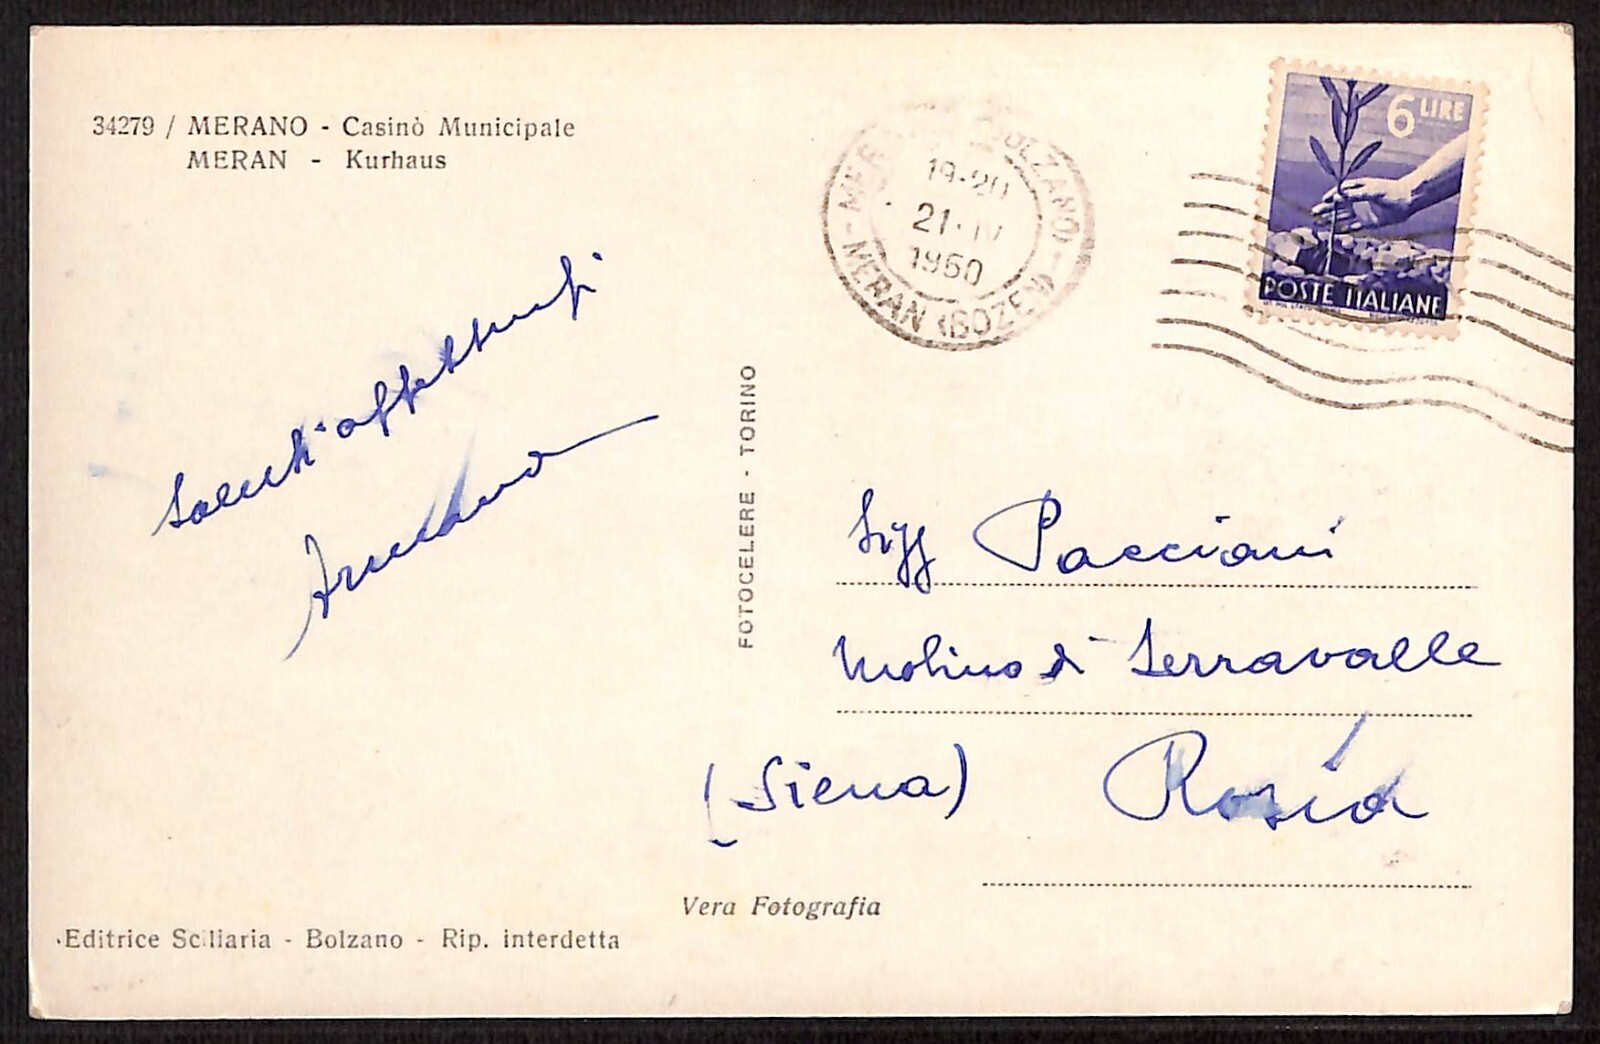 34279 / MERANO - Casinò Municipale
MERAN - Kurhaus
19-20
21·IV
1950
MERAN (BOZEN)
6 LIRE
POSTE ITALIANE
Saluti affettuosi
Armando
FOTOCELERE - TORINO
Sigg Pacciani
Molino di Serravalle
(Siena) Rosia
Vera Fotografia
Editrice Sciliaria - Bolzano - Rip. interdetta